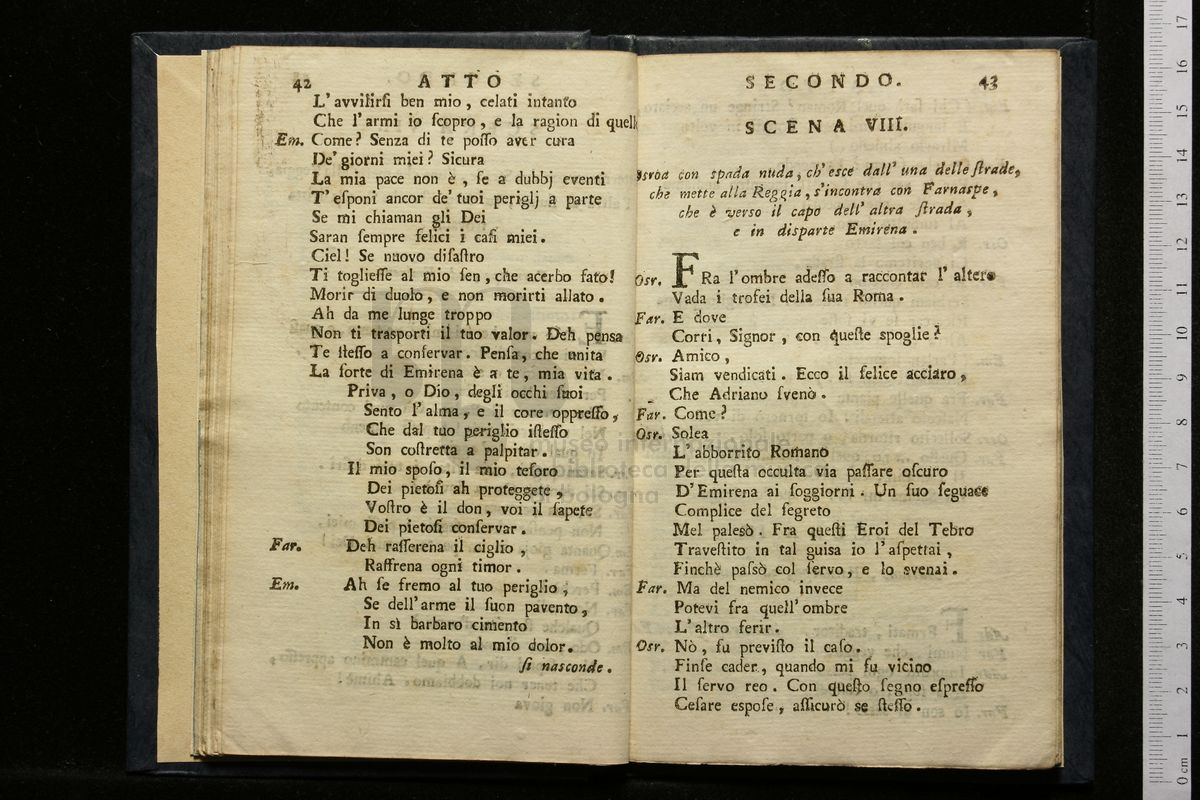 42 ATTO
L'avvilirſi ben mio, celati intanto
Che l'armi io ſcopro, e la ragion di quell
Em. Come? Senza di te poſſo aver cura
De' giorni miei? Sicura
La mia pace non è, ſe a dubbj eventi
T' eſponi ancor de' tuoi periglj a parte
Se mi chiaman gli Dei
Saran ſempre felici i caſi miei.
Ciel! Se nuovo diſaſtro
Ti toglieſſe al mio ſen, che acerbo fato!
Morir di duolo, e non morirti allato.
Ah da me lunge troppo
Non ti trasporti il tuo valor. Deh penſa
Te ſteſſo a conſervar. Penſa, che unita
La ſorte di Emirena è a te, mia vita.
Priva, o Dio, degli occhi ſuoi
Sento l'alma, e il core oppreſſo,
Che dal tuo periglio iſteſſo
Son coſtretta a palpitar.
Il mio ſpoſo, il mio teſoro
Dei pietoſi ah proteggete,
Voſtro è il don, voi il ſapete
Dei pietoſi conſervar.
Far. Deh raſſerena il ciglio,
Raffrena ogni timor.
Em. Ah ſe fremo al tuo periglio,
Se dell'arme il ſuon pavento,
In sì barbaro cimento
Non è molto al mio dolor.
ſi nasconde.
SECONDO. 43
SCENA VIII.
Osroa con spada nuda, ch'esce dall' una delle ſtrade,
che mette alla Reggia, s'incontra con Farnaspe,
che è verso il capo dell' altra ſtrada,
e in disparte Emirena.
Osr. FRa l'ombre adeſſo a raccontar l' altero
Vada i trofei della ſua Roma.
Far. E dove
Corri, Signor, con queſte spoglie?
Osr. Amico,
Siam vendicati. Ecco il felice acciaro,
Che Adriano ſvenò.
Far. Come?
Osr. Solea
L'abborrito Romano
Per queſta occulta via paſſare oſcuro
D'Emirena ai ſoggiorni. Un ſuo ſeguace
Complice del ſegreto
Mel palesò. Fra queſti Eroi del Tebro
Traveſtito in tal guisa io l'aſpettai,
Finchè paſsò col ſervo, e lo svenai.
Far. Ma del nemico invece
Potevi fra quell' ombre
L'altro ferir.
Osr. Nò, fu previſto il caſo.
Finſe cader, quando mi fu vicino
Il ſervo reo. Con queſto ſegno eſpreſſo
Ceſare espoſe, aſſicurò se ſteſſo.
museo internazionale
biblioteca della musica
di bologna
0 cm 1 2 3 4 5 6 7 8 9 10 11 12 13 14 15 16 17